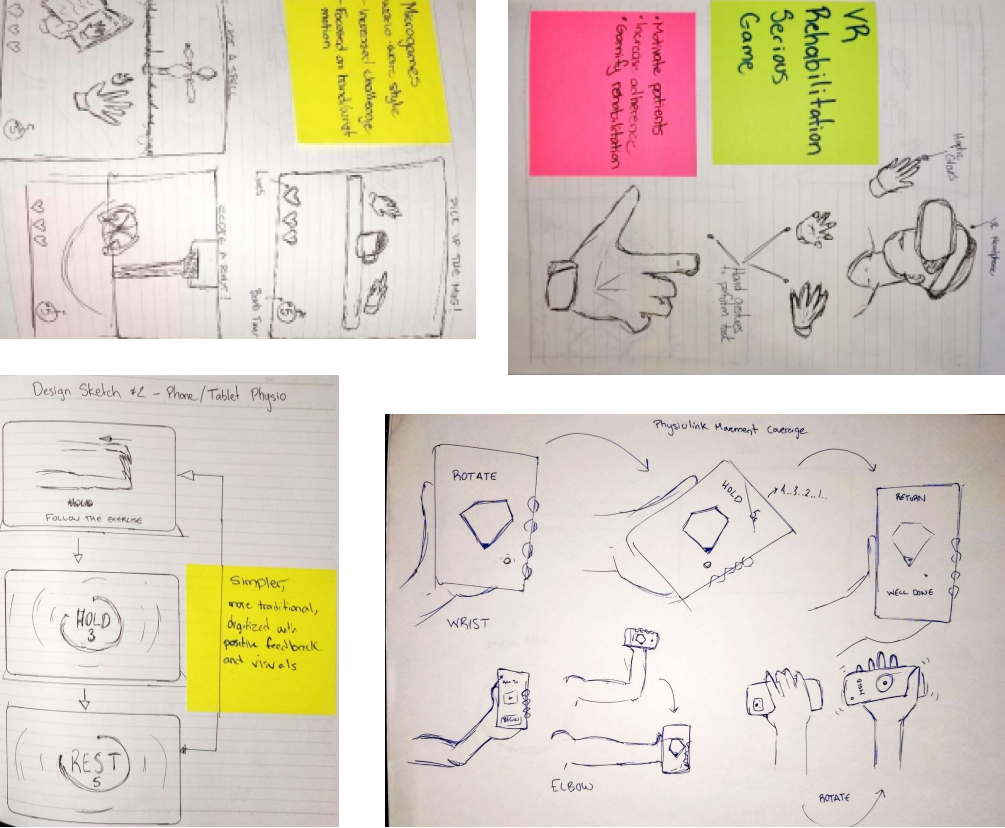 Microgames
- warioware style
- increased challenge
- Focused on hand/wrist
motion
CAST A SPELL
5
SCORE A RUN!
5
PICK UP THE MUG!
Lives
Bomb Timer
5
VR
Rehabilitation
Serious
Game
• Motivate patients
• Increase adherence
• Gamify rehabilitation
Haptic
Gloves
VR Headphones
Hand gestures
to perform task
Design Sketch #2 - Phone/Tablet Physio
HOLD
FOLLOW THE EXERCISE
HOLD
3
REST
5
Simpler,
more traditional,
digitized with
positive feedback
and visuals
Physiolink Movement Coverage
ROTATE
HOLD
5s
4..3..2..1..
RETURN
WELL DONE
WRIST
BEGIN
ELBOW
HOLD
ROTATE